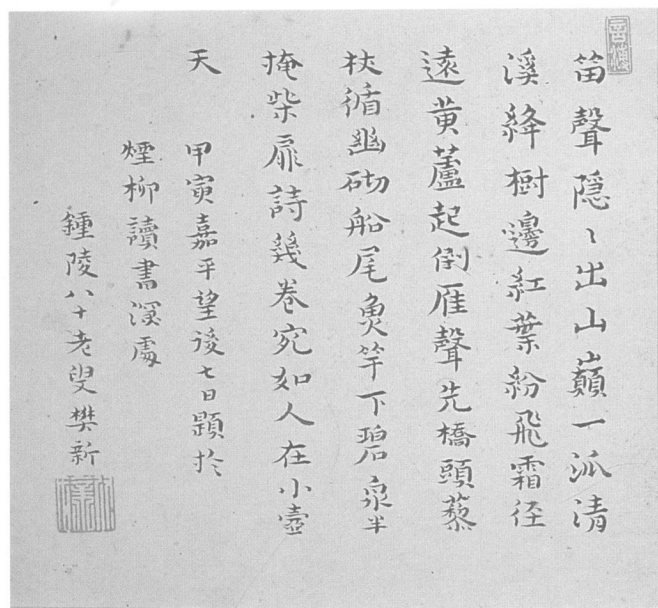 笛聲隱〻出山巔一派清
溪絳樹邊紅葉紛飛霜徑
遠黄蘆起倒雁聲先橋頭藜
杖循幽砌船尾魚竿下碧泉半
掩柴扉詩幾卷宛如人在小壺
天
甲寅嘉平望後七日題於
煙柳讀書深處
鍾陵八十老叟樊新